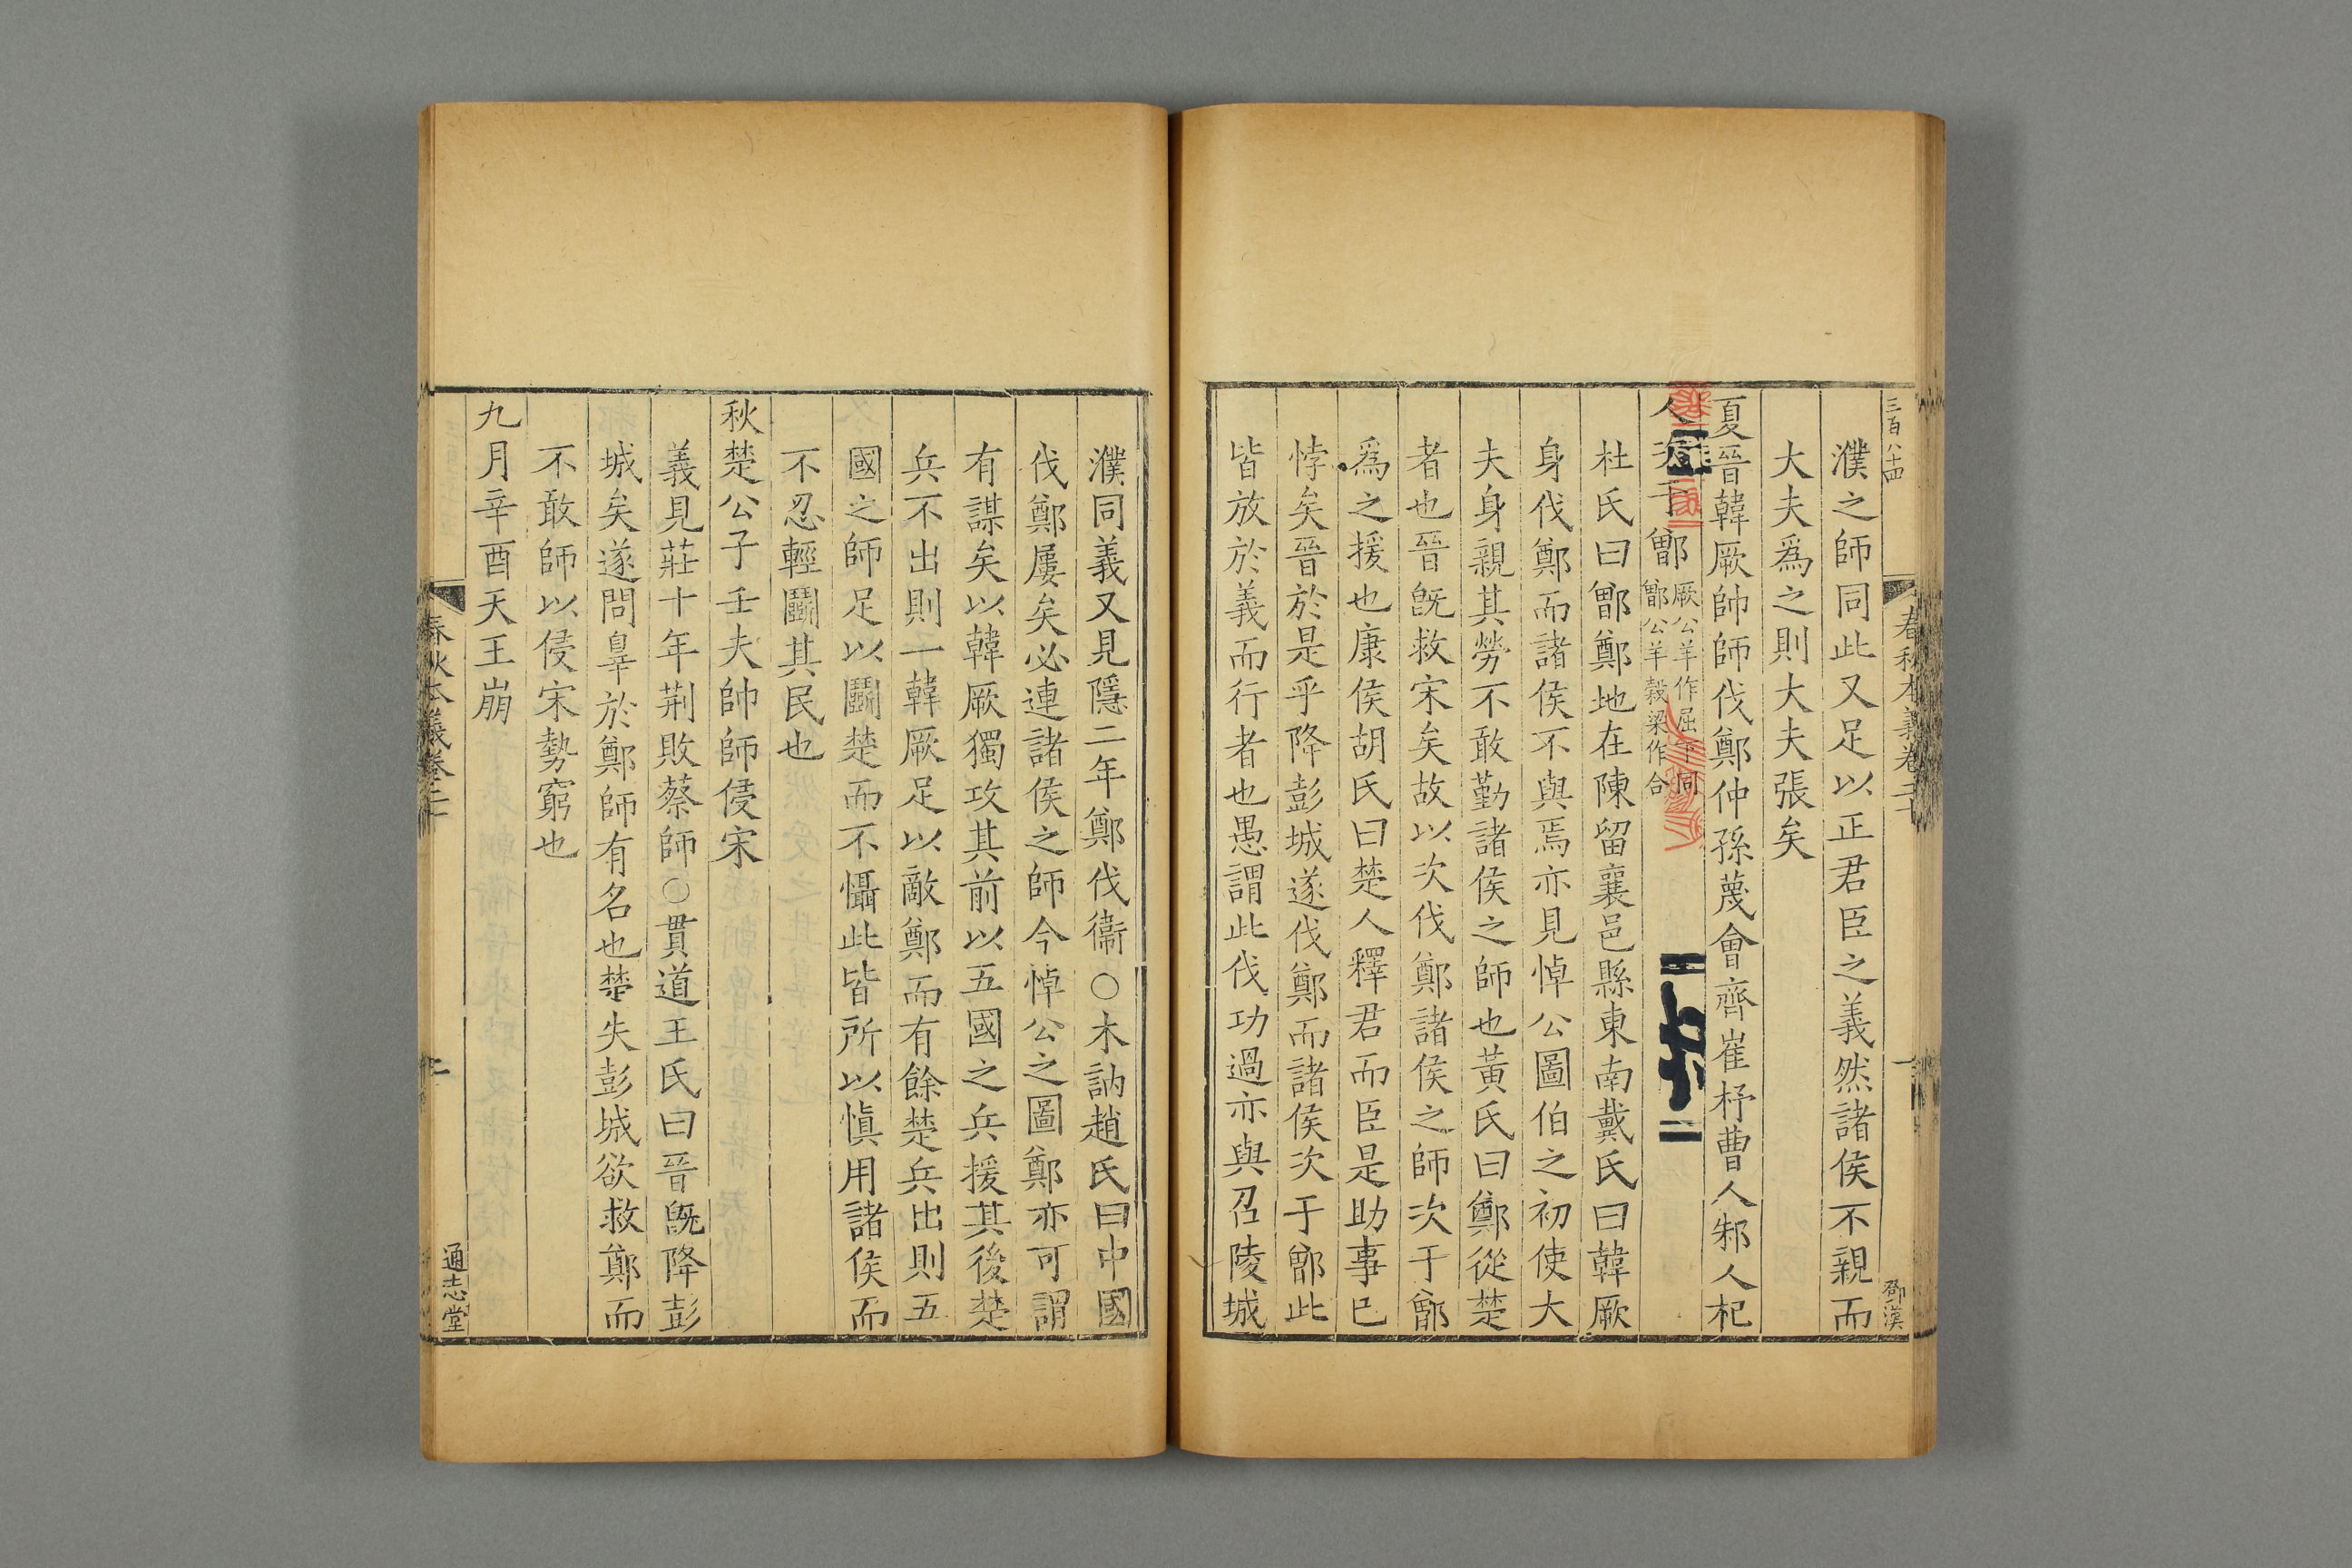 三百八十四
春秋本義卷二十
一
鄧漢
濮之師同此又足以正君臣之義然諸侯不親而
大夫爲之則大夫張矣
夏晉韓厥帥師伐鄭仲孫蔑會齊崔杼曹人邾人杞
人次于鄫
厥公羊作屈下同
鄫公羊榖梁作合
杜氏曰鄫鄭地在陳留襄邑縣東南戴氏曰韓厥
身伐鄭而諸侯不與焉亦見悼公圖伯之初使大
夫身親其勞不敢勤諸侯之師也黃氏曰鄭從楚
者也晉旣救宋矣故以次伐鄭諸侯之師次于鄫
爲之援也康侯胡氏曰楚人釋君而臣是助事已
悖矣晉於是乎降彭城遂伐鄭而諸侯次于鄫此
皆放於義而行者也愚謂此伐功過亦與召陵城
濮同義又見隱二年鄭伐衞○木訥趙氏曰中國
伐鄭屢矣必連諸侯之師今悼公之圖鄭亦可謂
有謀矣以韓厥獨攻其前以五國之兵援其後楚
兵不出則一韓厥足以敵鄭而有餘楚兵出則五
國之師足以鬬楚而不懾此皆所以愼用諸侯而
不忍輕鬬其民也
秋楚公子壬夫帥師侵宋
義見莊十年荆敗蔡師○貫道王氏曰晉旣降彭
城矣遂問辠於鄭師有名也楚失彭城欲救鄭而
不敢師以侵宋勢窮也
九月辛酉天王崩
春秋本義卷二十
通志堂